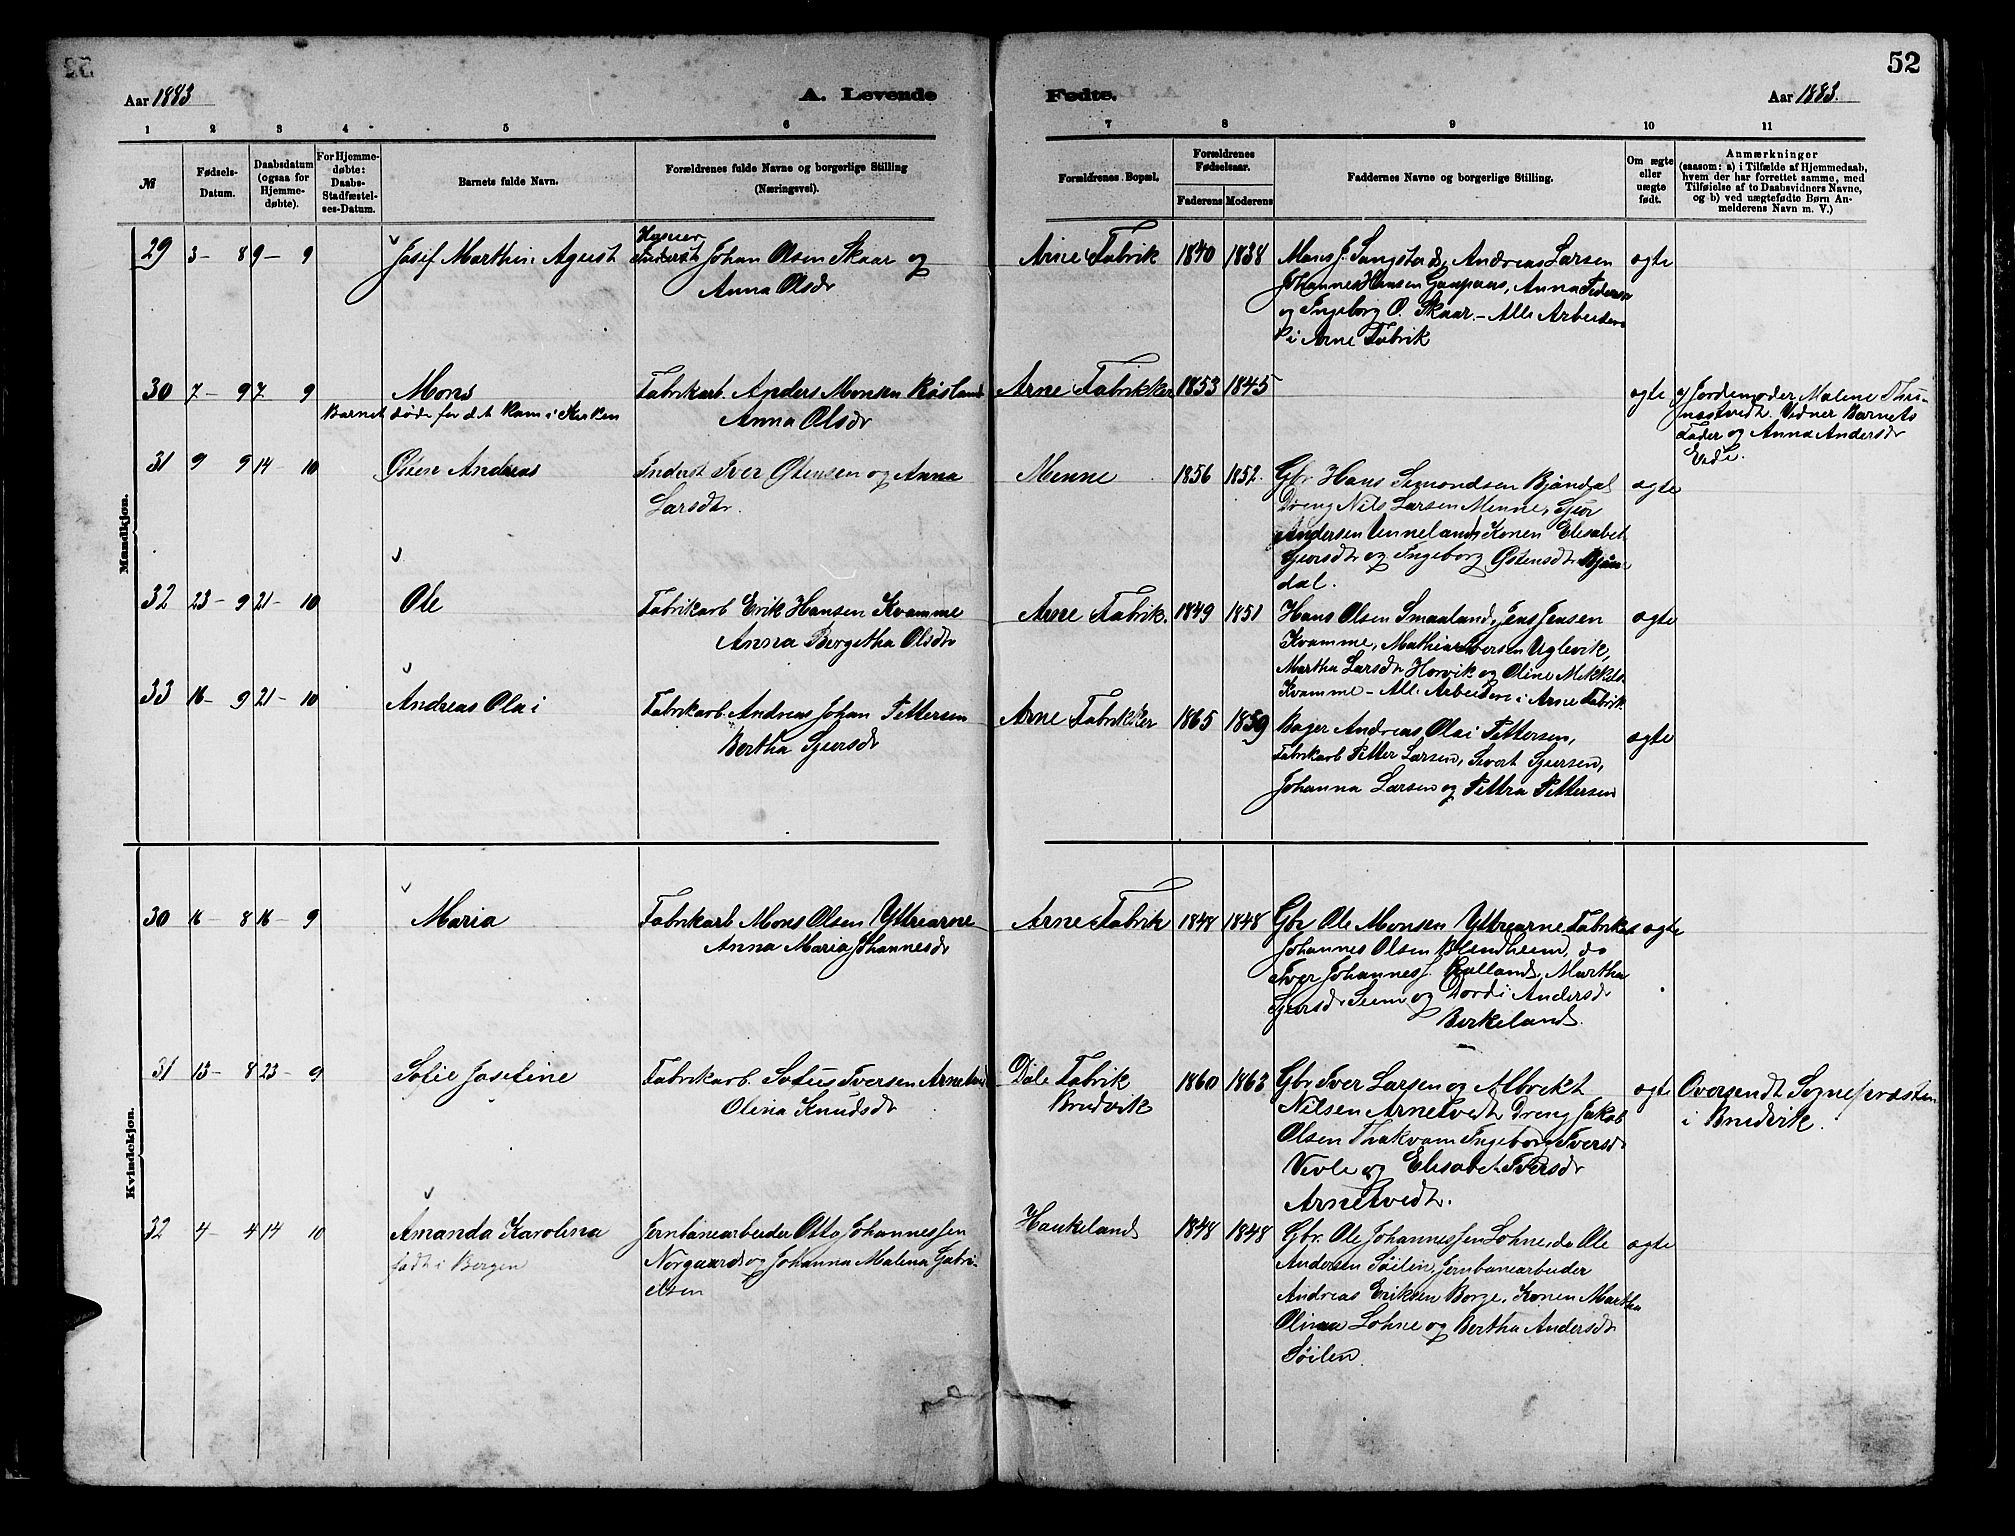 52
Aar 1883
A. Levende
Fødte.
Aar 1883.
1 2 3 4 5 6 7 8 9 10 11
№
Fødsels-
Datum.
Daabsdatum
(ogsaa for
Hjemme-
døbte).
For Hjemme-
døbte:
Daabs-
Stadfæstel-
ses-Datum.
Barnets fulde Navn.
Forældrenes fulde Navne og borgerlige Stilling
(Næringsvei).
Forældrenes Bopæl.
Forældrenes
Fødselsaar.
Faderens
Moderens
Faddernes Navne og borgerlige Stilling.
Om ægte
eller
uægte
født.
Anmærkninger
(saasom: a) i Tilfælde af Hjemmedaab,
hvem der har forrettet samme, med
Tilføielse af to Daabsvidners Navne,
og b) ved uægtefødte Børn An-
melderens Navn m. V.)
Mandkjøn.
29 3 - 8 9 - 9
Josif Marthin Agust
Inderst Johan Olsen Skaar og
Anna Olsdr
Arne Fabrik 1840 1838
Mons J. Langstad, Andreas Larsen
Johannes Hansen Gaupaas, Anna Peders
og Ingeborg O. Skaar - Alle Arbeidere
i Arne Fabrik
ægte
30 7 - 9 7 9
Mons
Barnet døde før det kom i Kirken
Fabrikarb. Anders Monsen Røsland
Anna Olsdr
Arne Fabrikker 1853 1845
ægte
a) Jordemoder Malene
Vidner Barnets
Fader og Anna Andersdr
31 9 9 14 - 10
Østen Andreas
Inderst Iver Østensen og Anna
Larsdtr.
Menne 1856 1852.
Gbr. Hans Simondsen Bjøndal
Dreng Nils Larsen Menne, Sjur
Andersen Unneland, Konen Elisabet
Sjursdtr og Ingeborg Østensdtr Bjøn-
dal.
ægte
32 23 - 9 21 - 10
Ole
Fabrikarb Erik Hansen Kvamme
Anna Bergetha Olsdtr
Arne Fabrik. 1849 1851
Hans Olsen Smaaland, Jens Jensen
Kvamme, Mathias Iversen Uglevik,
Martha Larsdtr Horvik og Oline Mikkels
Kvamme - Alle Arbeidere i Arne Fabrik
ægte
33 16 - 9 21 - 10
Andreas Olai
Fabrikarb. Andreas Johan Pettersen
Bertha Sjursdr
Arne Fabrikker 1865 1859
Bager Andreas Olai Pettersen,
Fabrikarb Petter Larsen, Sivert Sjursen,
Johanna Larsen og Pettra Pettersen
ægte
Kvindekjøn.
30 16 - 8 16 - 9
Maria
Fabrikarb Mons Olsen Yttrearne
Anna Maria Johannesdr
Arne Fabrik 1848 1848
Gbr Ole Monsen Yttrearne Fabrika
Johannes Olsen Blendheim, do
Iver Johannes J. Hulland, Martha
Sjursdr Seim og Dordi Andersdr
Birkeland.
ægte
31 13 - 8 23 - 9
Sofie Josefine
Fabrikarb. Sofus Iversen Arnetvedt
Olina Knudsdr
Dale Fabrik
Bruvik
1860 1863
Gbr Iver Larsen og Albrekt
Nilsen Arnetvedt, Dreng Jakob
Olsen Thakvam Ingeborg Iversdr
Vevle og Elisabet Iversdr
Arnetvedt.
ægte
Oversendt Sognepræsten
i Bruvik.
32 4 - 4 14 10
Amanda Karolina
født i Bergen
Jernbanearbeider Otto Johannessen
Norgaard og Johanna Malena Gabri-
elsen
Haukeland 1848 1848
Gbr. Ole Johannessen Lohne, do Ole
Andersen Søilen, Jernbanearbeider
Andreas Eriksen Borge, Konen Martha
Olina Lohne og Bertha Andersdr
Søilen.
ægte